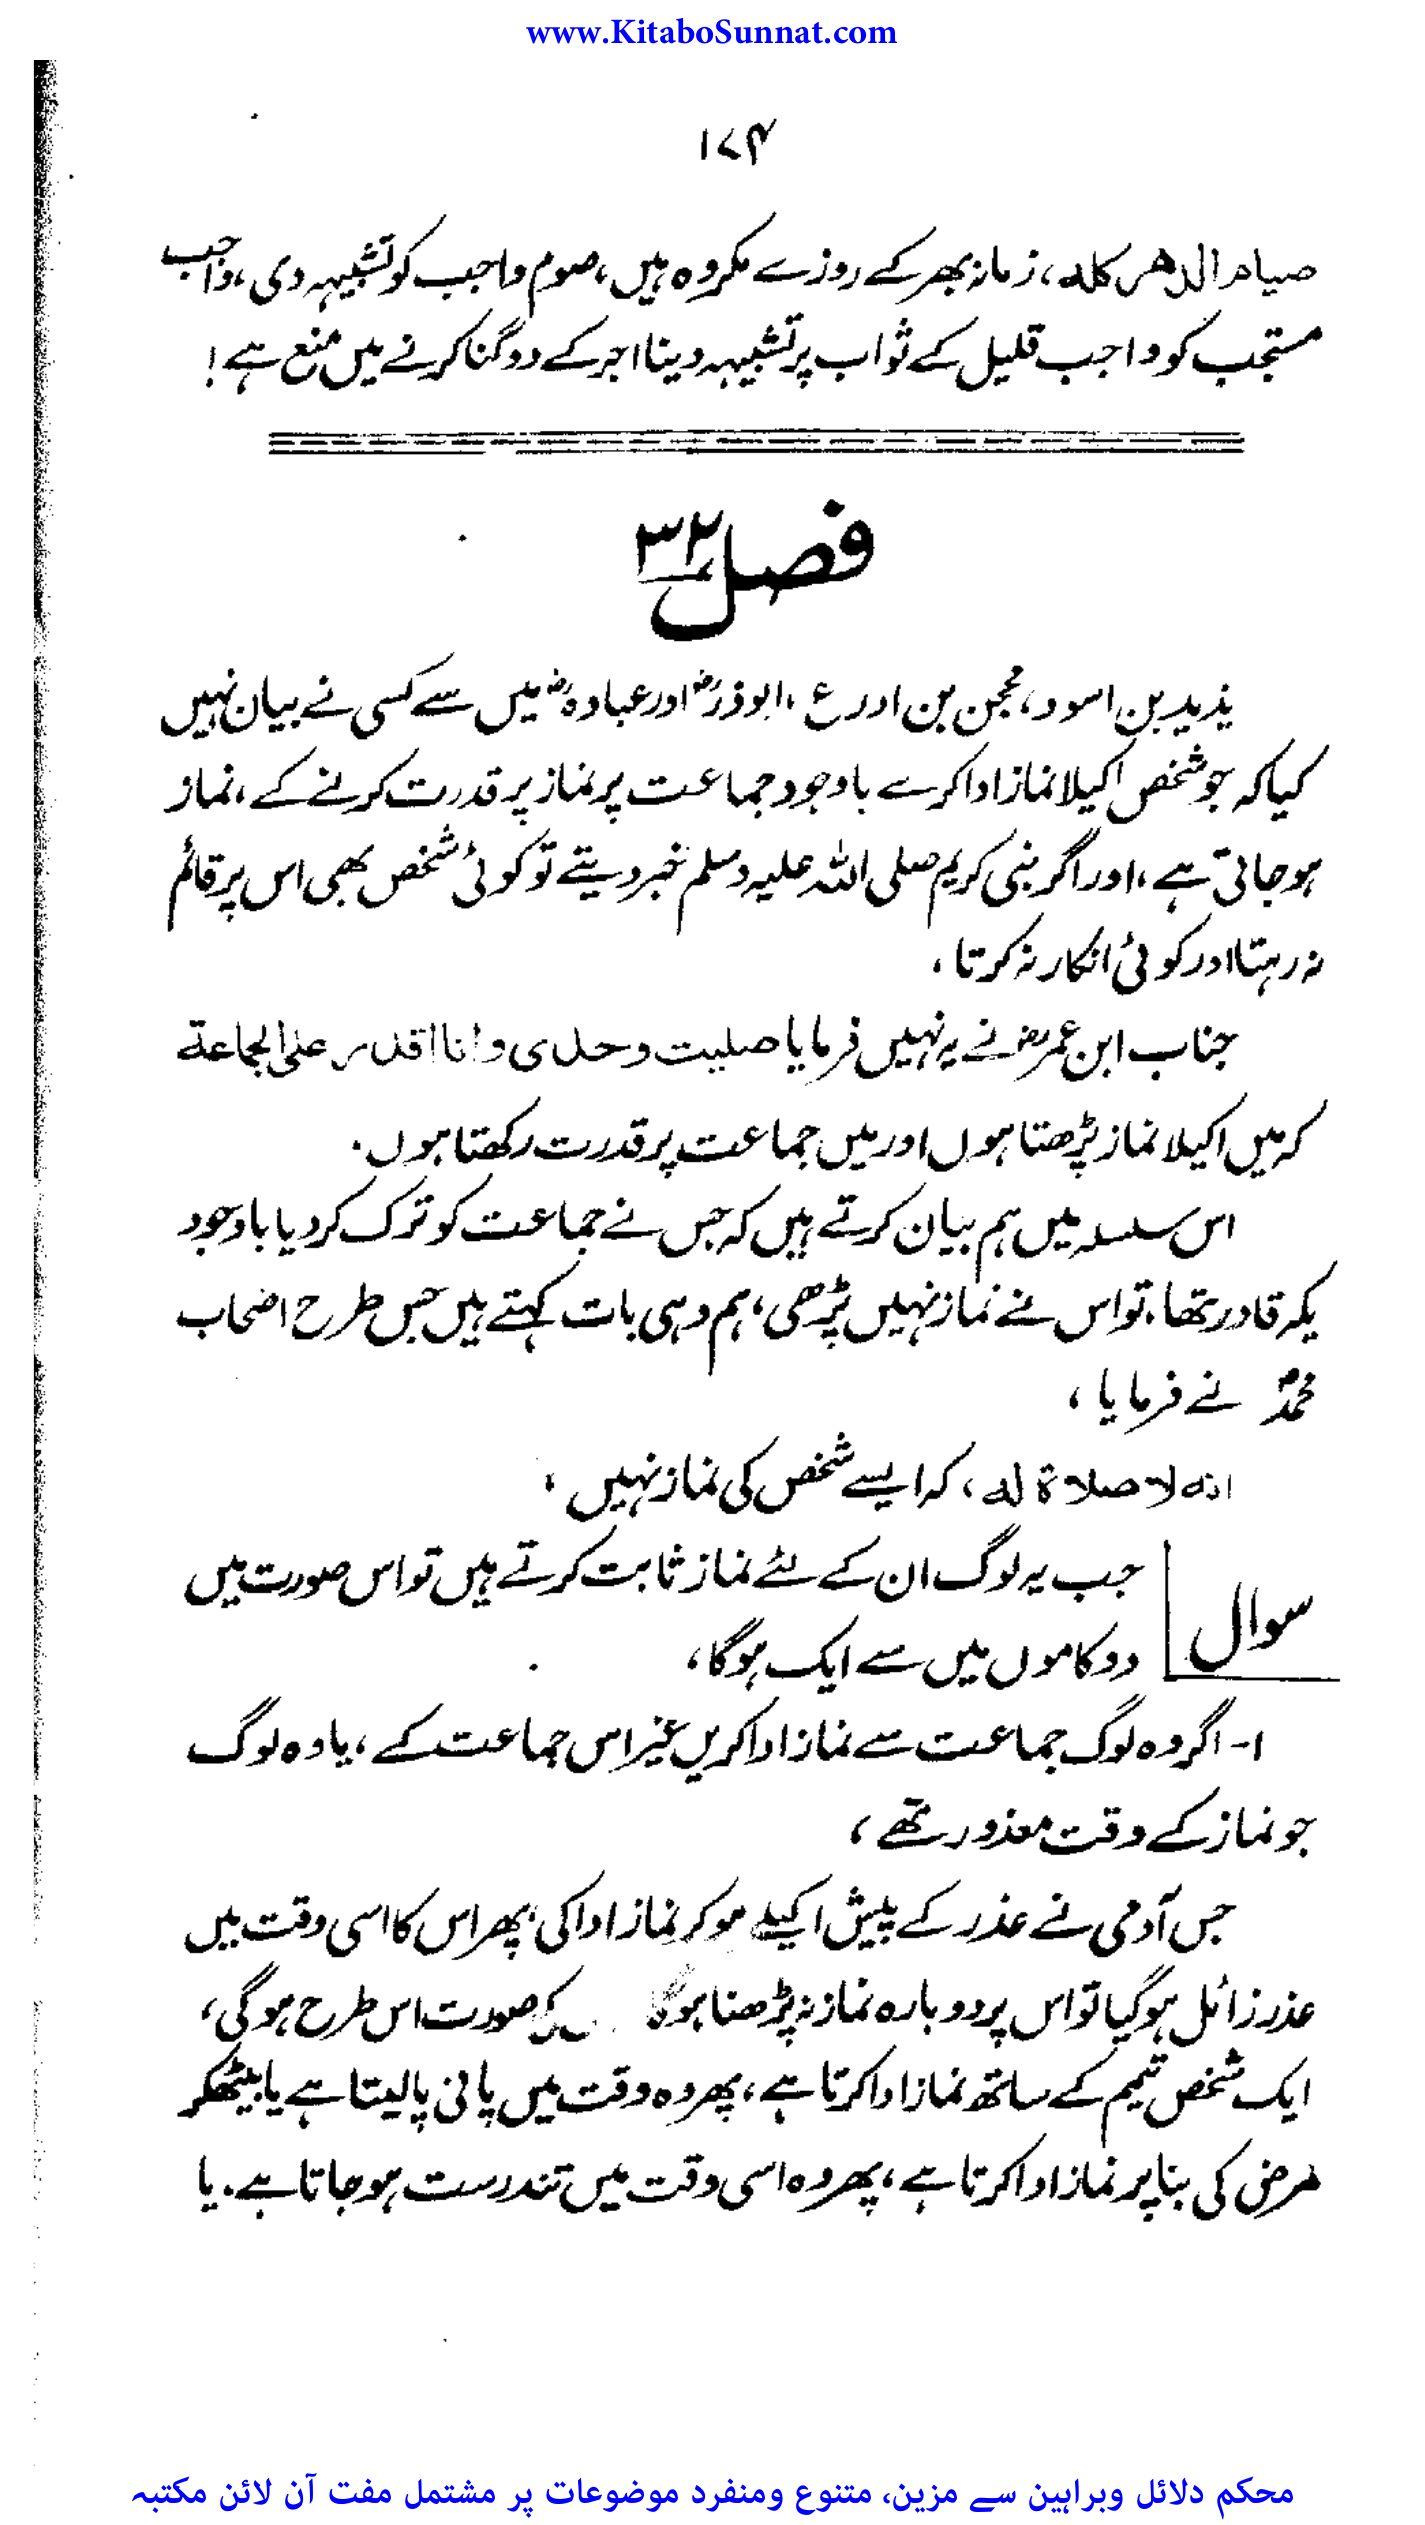 www.KitaboSunnat.com
۱۷۴
صیام الدهر کله، زمانہ بھر کے روزے مکروہ ہیں، صوم واجب کو تشبیہہ دی، واجب
مستحب کو واجب قلیل کے ثواب پر تشبیہہ دینا اجر کے دوگنا کرنے میں منع ہے!
فصل ۳۲
یذید بن اسود، محجن بن ادرع، ابوذرؓ اور عبادہؓ میں سے کسی نے بیان نہیں
کیا کہ جو شخص اکیلا نماز ادا کرے باوجود جماعت پر نماز پر قدرت کرنے کے، نماز
ہو جاتی ہے، اور اگر نبی کریم صلی اللہ علیہ وسلم خبر دیتے تو کوئی شخص بھی اس پر قائم
نہ رہتا اور کوئی انکار نہ کرتا،
جناب ابن عمرؓ نے یہ نہیں فرمایا صلیت وحدی وانا اقدر علی الجماعة
کہ میں اکیلا نماز پڑھتا ہوں اور میں جماعت پر قدرت رکھتا ہوں.
اس سلسلہ میں ہم بیان کرتے ہیں کہ جس نے جماعت کو ترک کر دیا باوجود
یکہ قادر تھا، تو اس نے نماز نہیں پڑھی، ہم وہی بات کہتے ہیں جس طرح اصحاب
محمدؐ نے فرمایا،
انه لا صلاة له، کہ ایسے شخص کی نماز نہیں،
سوال جب یہ لوگ ان کے لئے نماز ثابت کرتے ہیں تو اس صورت میں
دو کاموں میں سے ایک ہوگا،
۱- اگر وہ لوگ جماعت سے نماز ادا کریں غیر اس جماعت کے، یا وہ لوگ
جو نماز کے وقت معذور تھے،
جس آدمی نے عذر کے پیش اکیلے ہو کر نماز ادا کی، پھر اس کا اسی وقت میں
عذر زائل ہو گیا تو اس پر دوبارہ نماز نہ پڑھنا ہوگا کہ صورت اس طرح ہوگی،
ایک شخص تیمم کے ساتھ نماز ادا کرتا ہے، پھر وہ وقت میں پانی پا لیتا ہے یا بیٹھ کر
مرض کی بنا پر نماز ادا کرتا ہے، پھر وہ اسی وقت میں تندرست ہو جاتا ہے. یا
محکم دلائل وبراہین سے مزین، متنوع ومنفرد موضوعات پر مشتمل مفت آن لائن مکتبہ